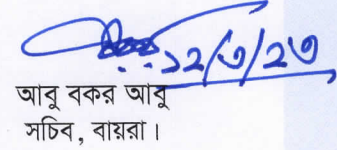 ১২/৩/২৩
আবু বকর আবু
সচিব, বায়রা।